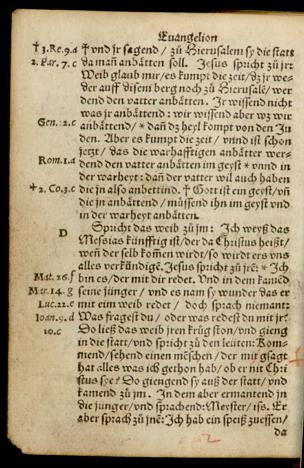 Euangelion
✝ 3.Re.9.a ✝ vnd jr sagend / zů Hierusalem sy die statt
2. Par. 7. c da mañ anbätten soll. Jesus spricht zů jr:
Weib glaub mir / es kumpt die zeit / dz jr we-
der auff disem berg noch zů Hierusalē / wer
dend den vatter anbätten. Ir wissend nicht
was jr anbättend : wir wissend aber wz wir
Gen. 2.c anbättend / * dañ dz heyl kompt von den Ju
den. Aber es kumpt die zeit / vnnd ist schon
jetzt / das die warhafftigen anbätter wer-
Rom.1.a dend den vatter anbätten im geyst * vnnd in
der warheyt: dañ der vatter wil auch haben
✝ 2. Co.3.c die jn also anbettind. ✝ Gott ist ein geyst / vñ
die jn anbättend / müssend jhn im geyst vnd
in der warheyt anbätten.
D Spricht das weib zů jm: Ich weyß das
Messias künfftig ist / der da Christus heißt /
weñ der selb kom̃en wirdt / so wirdt ers vns
alles verkündigē. Jesus spricht zů jrē: * Ich
Mat. 26.f bin es / der mit dir redet. Vnd in dem kamēd
Mar.14.g seine jünger / vnd es nam sy wunder das er
Luc.22.e mit eim weib redet / doch sprach niemant:
Ioan.9.d Was fragest du / oder was redest du mit jr?
10.c Do ließ das weib jren krůg ston / vnd gieng
in die statt / vnd spricht zů den leüten: Kom-
mend / sehend einen mēschen / der mir gsagt
hat alles was ich gethon hab / ob er nit Chri
stus sye? Do giengend sy auß der statt / vnd
kamend zů jm. In dem aber ermantend jn
die jünger / vnd sprachend: Meyster / iss. Er
aber sprach zů jnē: Ich hab ein speiß zuessen /
da